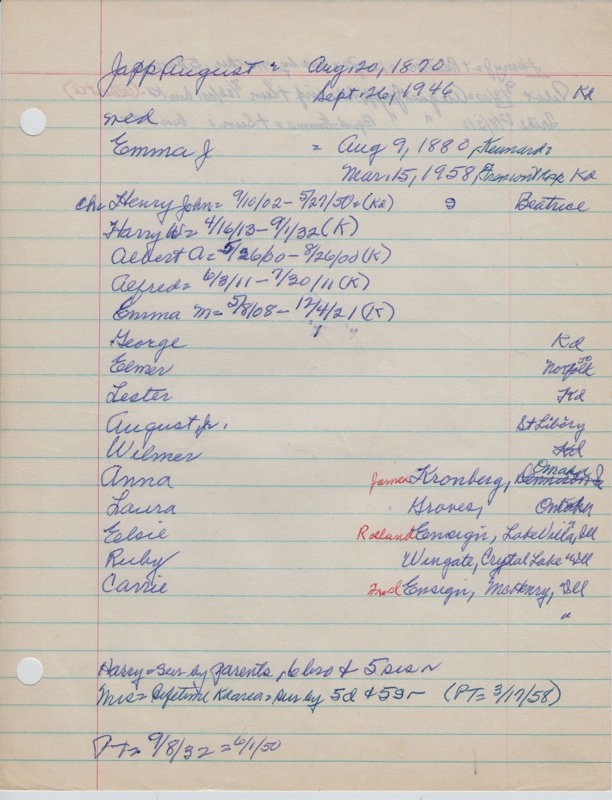 Japp, August = Aug. 20, 1870
Sept. 26, 1946 Kd
med
Emma J = Aug 9, 1880,
Mar. 15, 1958, Kd
Ch = Henry John = 9/10/02 - 5/27/50 = (Kd) Beatrice
Harry W = 4/16/13 - 9/1/32 (K)
Albert A = 5/26/00 - 8/26/00 (K)
Alfred = 6/3/11 - 7/20/11 (K)
Emma M = 5/8/08 - 12/4/21 (K)
" "
George Kd
Elmer Norfolk
Lester Kd
August, Jr. St Libory
Wilmer Kd
Anna James Kronberg, Omaha
Laura Groves,
Elsie Rolland Ensign, Lake Villa, Ill
Ruby Wingate, Crystal Lake " Ill
Carrie Fred Ensign, McHenry, Ill
"
Harry = sur by parents, 6 bro & 5 sis ~
Mrs = Lifetime Kd area = sur by 5d & 5s ~ (PT = 3/17/58)
PT = 9/8/32 = 6/1/50